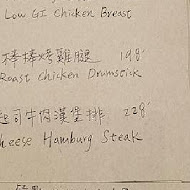 Low GI Chicken Breast
棒棒烤雞腿 198'
Roast Chicken Drumstick
起司牛肉漢堡排 228'
Cheese Hamburg Steak